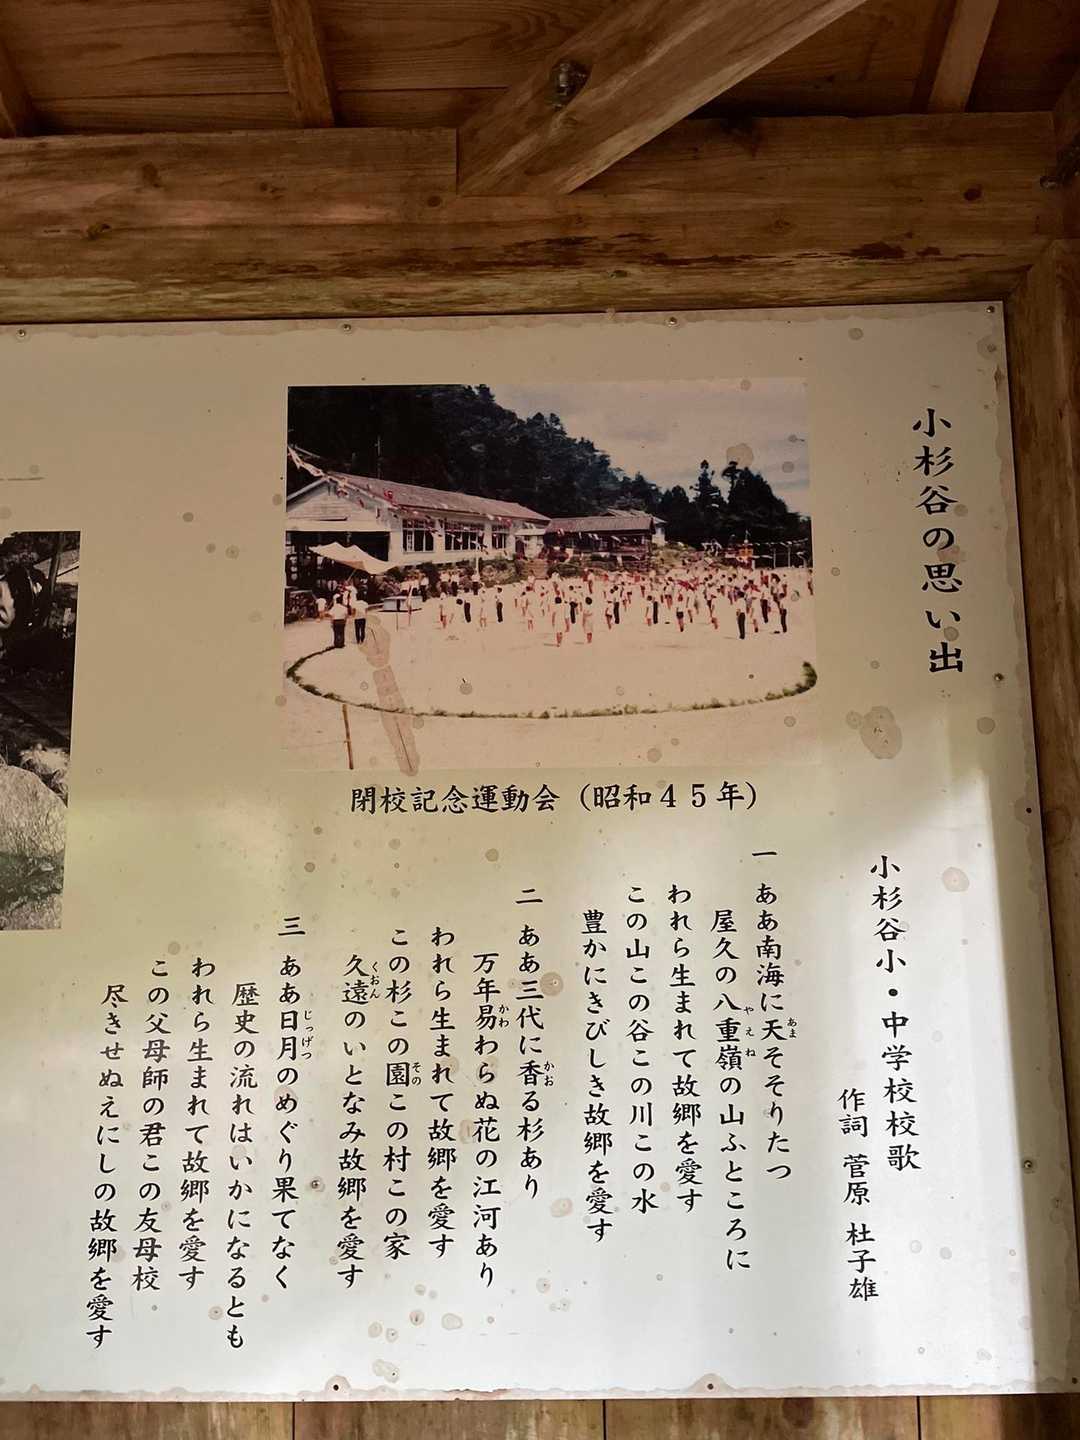 小杉谷の思い出
閉校記念運動会（昭和４５年）
小杉谷小・中学校校歌
作詞 菅原 杜子雄
一 ああ南海に天そそりたつ
あま
屋久の八重嶺の山ふところに
やえね
われら生まれて故郷を愛す
この山この谷この川この水
豊かにきびしき故郷を愛す
二 ああ三代に香る杉あり
かお
万年易わらぬ花の江河あり
かわ
われら生まれて故郷を愛す
この杉この園この村この家
その
久遠のいとなみ故郷を愛す
くおん
三 ああ日月のめぐり果てなく
じつげつ
歴史の流れはいかになるとも
われら生まれて故郷を愛す
この父母師の君この友母校
尽きせぬえにしの故郷を愛す